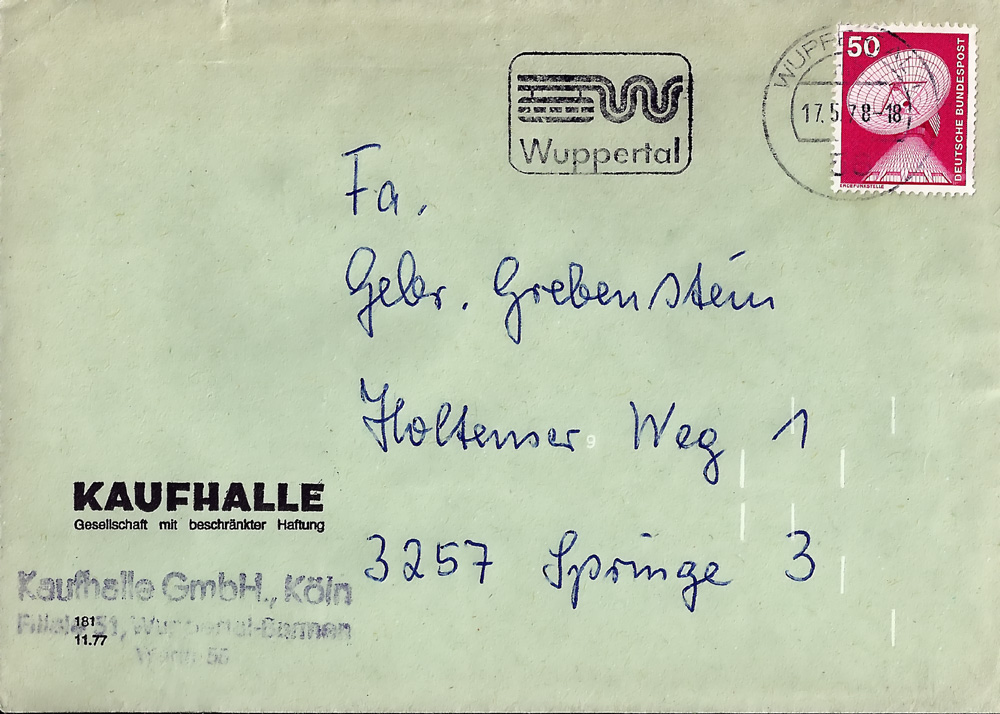 50
DEUTSCHE BUNDESPOST
ERDEFUNKSTELLE
17.5.78-18
Wuppertal
Fa.
Gebr. Grebenstein
Holtenser Weg 1
9
3257 Springe 3
KAUFHALLE
Gesellschaft mit beschränkter Haftung
Kaufhalle GmbH., Köln
Filiale 51, Wuppertal-Barmen
181
11.77